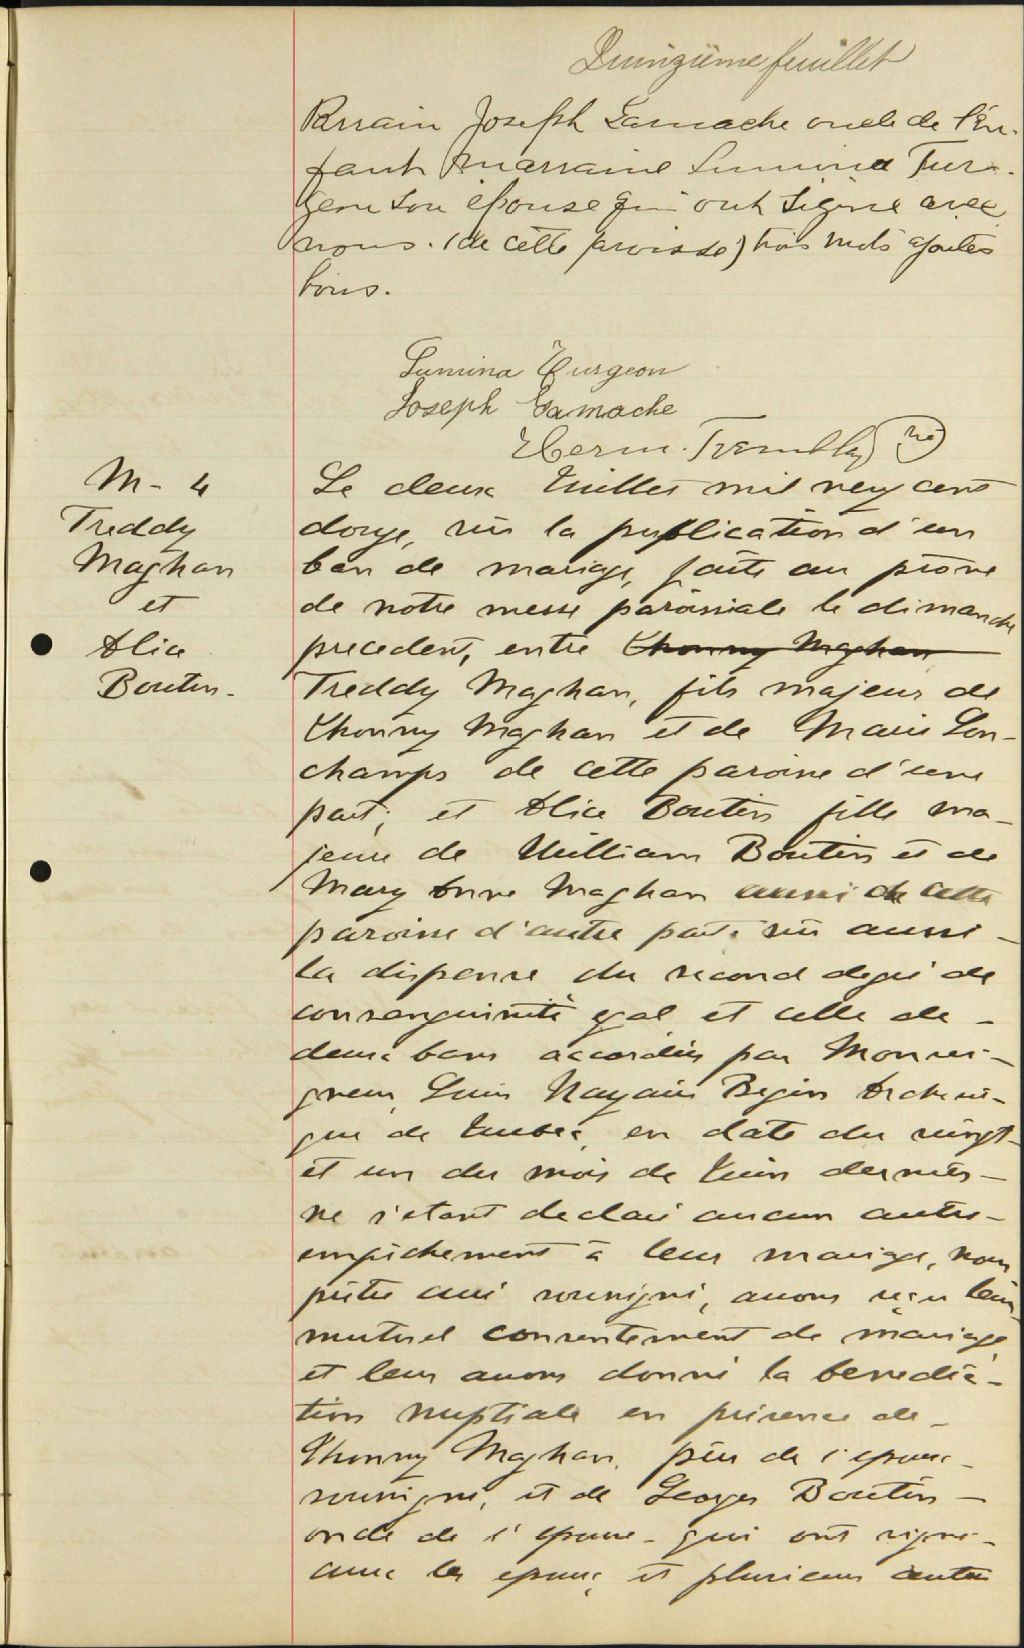 Quinzième feuillet
Parrain Joseph Gamache oncle de l'En-
fant Marraine Lumina Tur-
geon son épouse qui ont signé avec
nous. (de cette paroisse) trois mots ajoutés
bons.
Lumina Turgeon
Joseph Gamache
Herm. Tremblay Ptre
M - 4
Treddy
Maghan
et
Alice
Boutin -
Le deux Juillet mil neuf cent
douze, vu la publication d'un
ban de mariage, faite au prône
de notre messe paroissiale le dimanche
precedent, entre Thonny Maghan
Treddy Maghan, fils majeur de
Thonny Maghan et de Marie Lon-
champs de cette paroisse d'une
part; et Alice Boutin fille ma-
jeure de William Boutin et de
Mary Anne Maghan aussi de cette
paroisse d'autre part. vu aussi -
la dispense du second degré de
consanguinité egal et celle de -
deux bans accordées par Monsei-
gneur Louis Nazaire Begin Archevê-
que de Quebec, en date du vingt-
et un du mois de Juin dernier -
ne s'etant declaré aucun autre -
empêchement à leur mariage, nous
prêtre curé soussigné, avons reçu leur
mutuel consentement de mariage
et leur avons donné la benedic-
tion nuptiale en présence de -
Thonny Maghan, père de l'epoux -
soussigné, et de Georges Boutin -
oncle de l'epouse - qui ont signé -
avec les epoux, et plusieurs autres